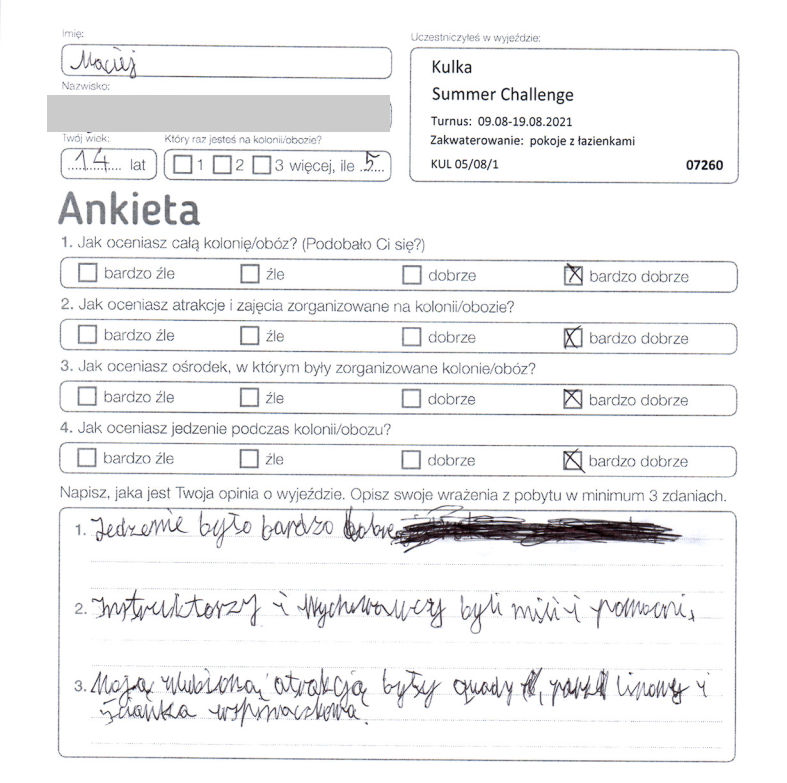 Imię:
Maciej
Nazwisko:
Twój wiek:
14 lat
Który raz jesteś na kolonii/obozie?
1 2 3 więcej, ile 5
Uczestniczyłeś w wyjeździe:
Kulka
Summer Challenge
Turnus: 09.08-19.08.2021
Zakwaterowanie: pokoje z łazienkami
KUL 05/08/1 07260
Ankieta
1. Jak oceniasz całą kolonię/obóz? (Podobało Ci się?)
bardzo źle źle dobrze bardzo dobrze
2. Jak oceniasz atrakcje i zajęcia zorganizowane na kolonii/obozie?
bardzo źle źle dobrze bardzo dobrze
3. Jak oceniasz ośrodek, w którym były zorganizowane kolonie/obóz?
bardzo źle źle dobrze bardzo dobrze
4. Jak oceniasz jedzenie podczas kolonii/obozu?
bardzo źle źle dobrze bardzo dobrze
Napisz, jaka jest Twoja opinia o wyjeździe. Opisz swoje wrażenia z pobytu w minimum 3 zdaniach.
1. Jedzenie było bardzo dobre
2. Instruktorzy i Wychowawczy byli mili i pomocni.
3. Moją ulubioną atrakcją były quady, park linowy i
ścianka wspinaczkowa.